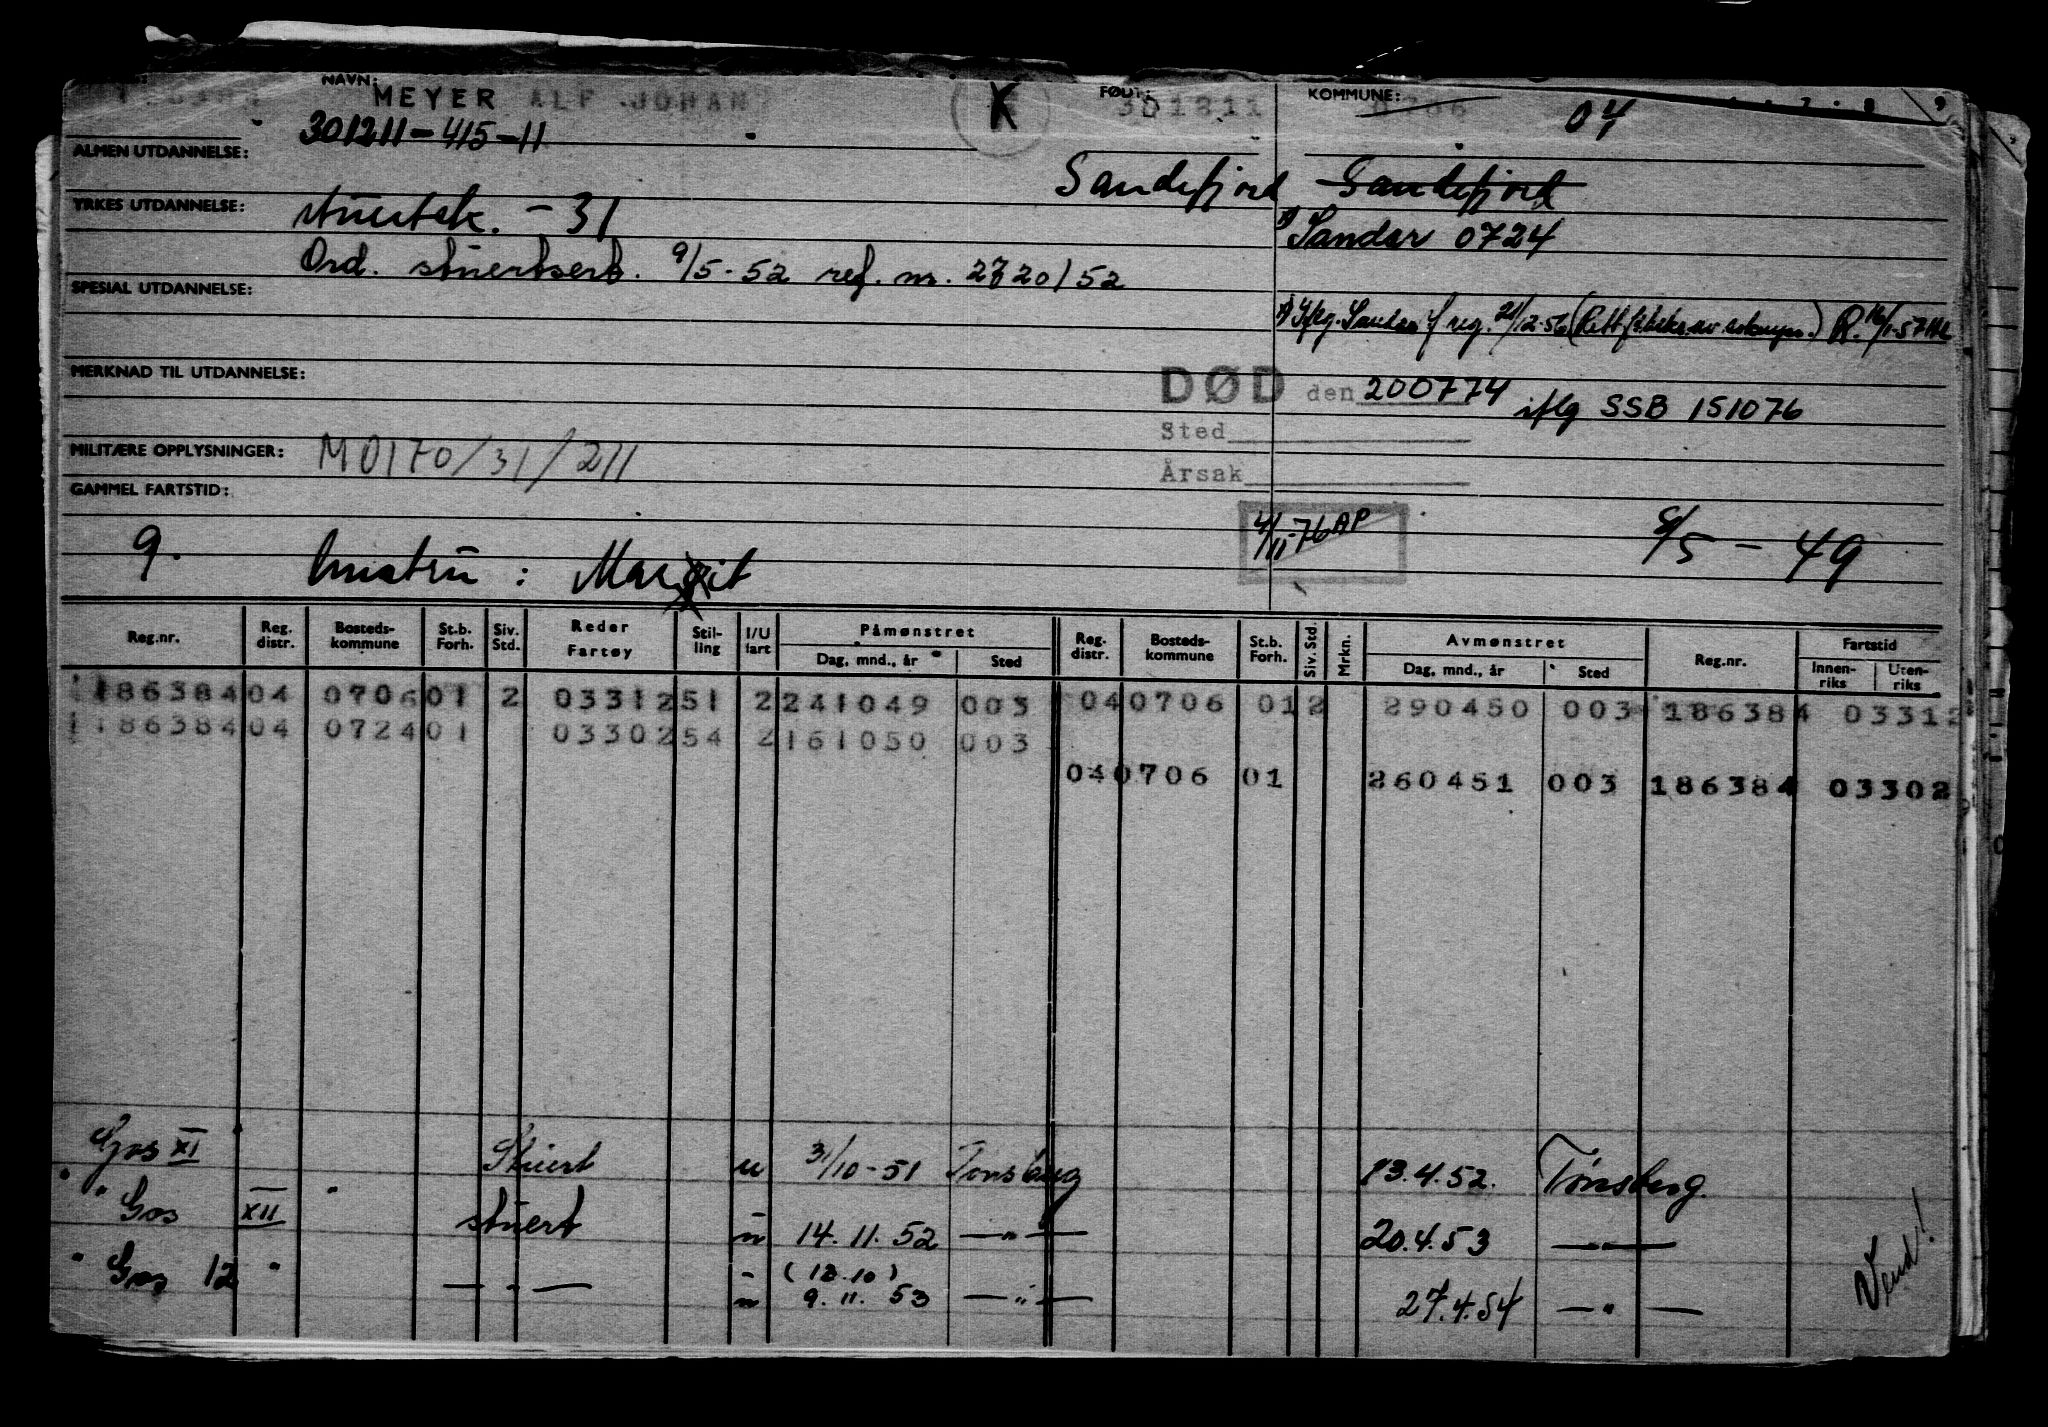 NAVN: MEYER ALF JOHAN K FØDT: 301211 KOMMUNE: 04
301211-415-11
ALMEN UTDANNELSE:
Sandefjord Sandefjord
YRKES UTDANNELSE: stuertsk. - 31
x) Sandar 0724
Ord. stuertsert. 9/5-52 ref. nr. 2720/52
SPESIAL UTDANNELSE:
x) Iflg. Sandar f reg. 21/12-56 R. 16/1-57
MERKNAD TIL UTDANNELSE:
DØD den 200774 iflg SSB 151076
Sted
MILITÆRE OPPLYSNINGER: M0170/31/211
Årsak
GAMMEL FARTSTID:
4/11-76 AP
9. hustru : Margit 6/5 - 49
Reg.nr. Reg. distr. Bosteds-kommune St.b. Forh. Siv. Std. Reder Fartøy Stil-ling I/U fart Påmønstret Dag, mnd., år Sted Reg. distr. Bosteds-kommune St.b. Forh. Siv. Std. Mrkn. Avmønstret Dag, mnd., år Sted Reg.nr. Fartstid Innen-riks Uten-riks
186384 04 0706 01 2 03312 51 2 241049 003 04 0706 01 2 290450 003 186384 03312
186384 04 0724 01 03302 54 2 161050 003
04 0706 01 260451 003 186384 03302
Gos XI Stuert u 31/10-51 Tønsberg 13.4.52. Tønsberg.
" Gos XII " stuert u 14. 11. 52 —"— 20.4.53 —"—
" Gos 12 " —"— u (13.10)
9. 11. 53 —"— 27.4.54 —"—
Vend!